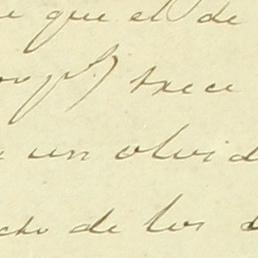 que el de
trece
un olvid
cho de los d